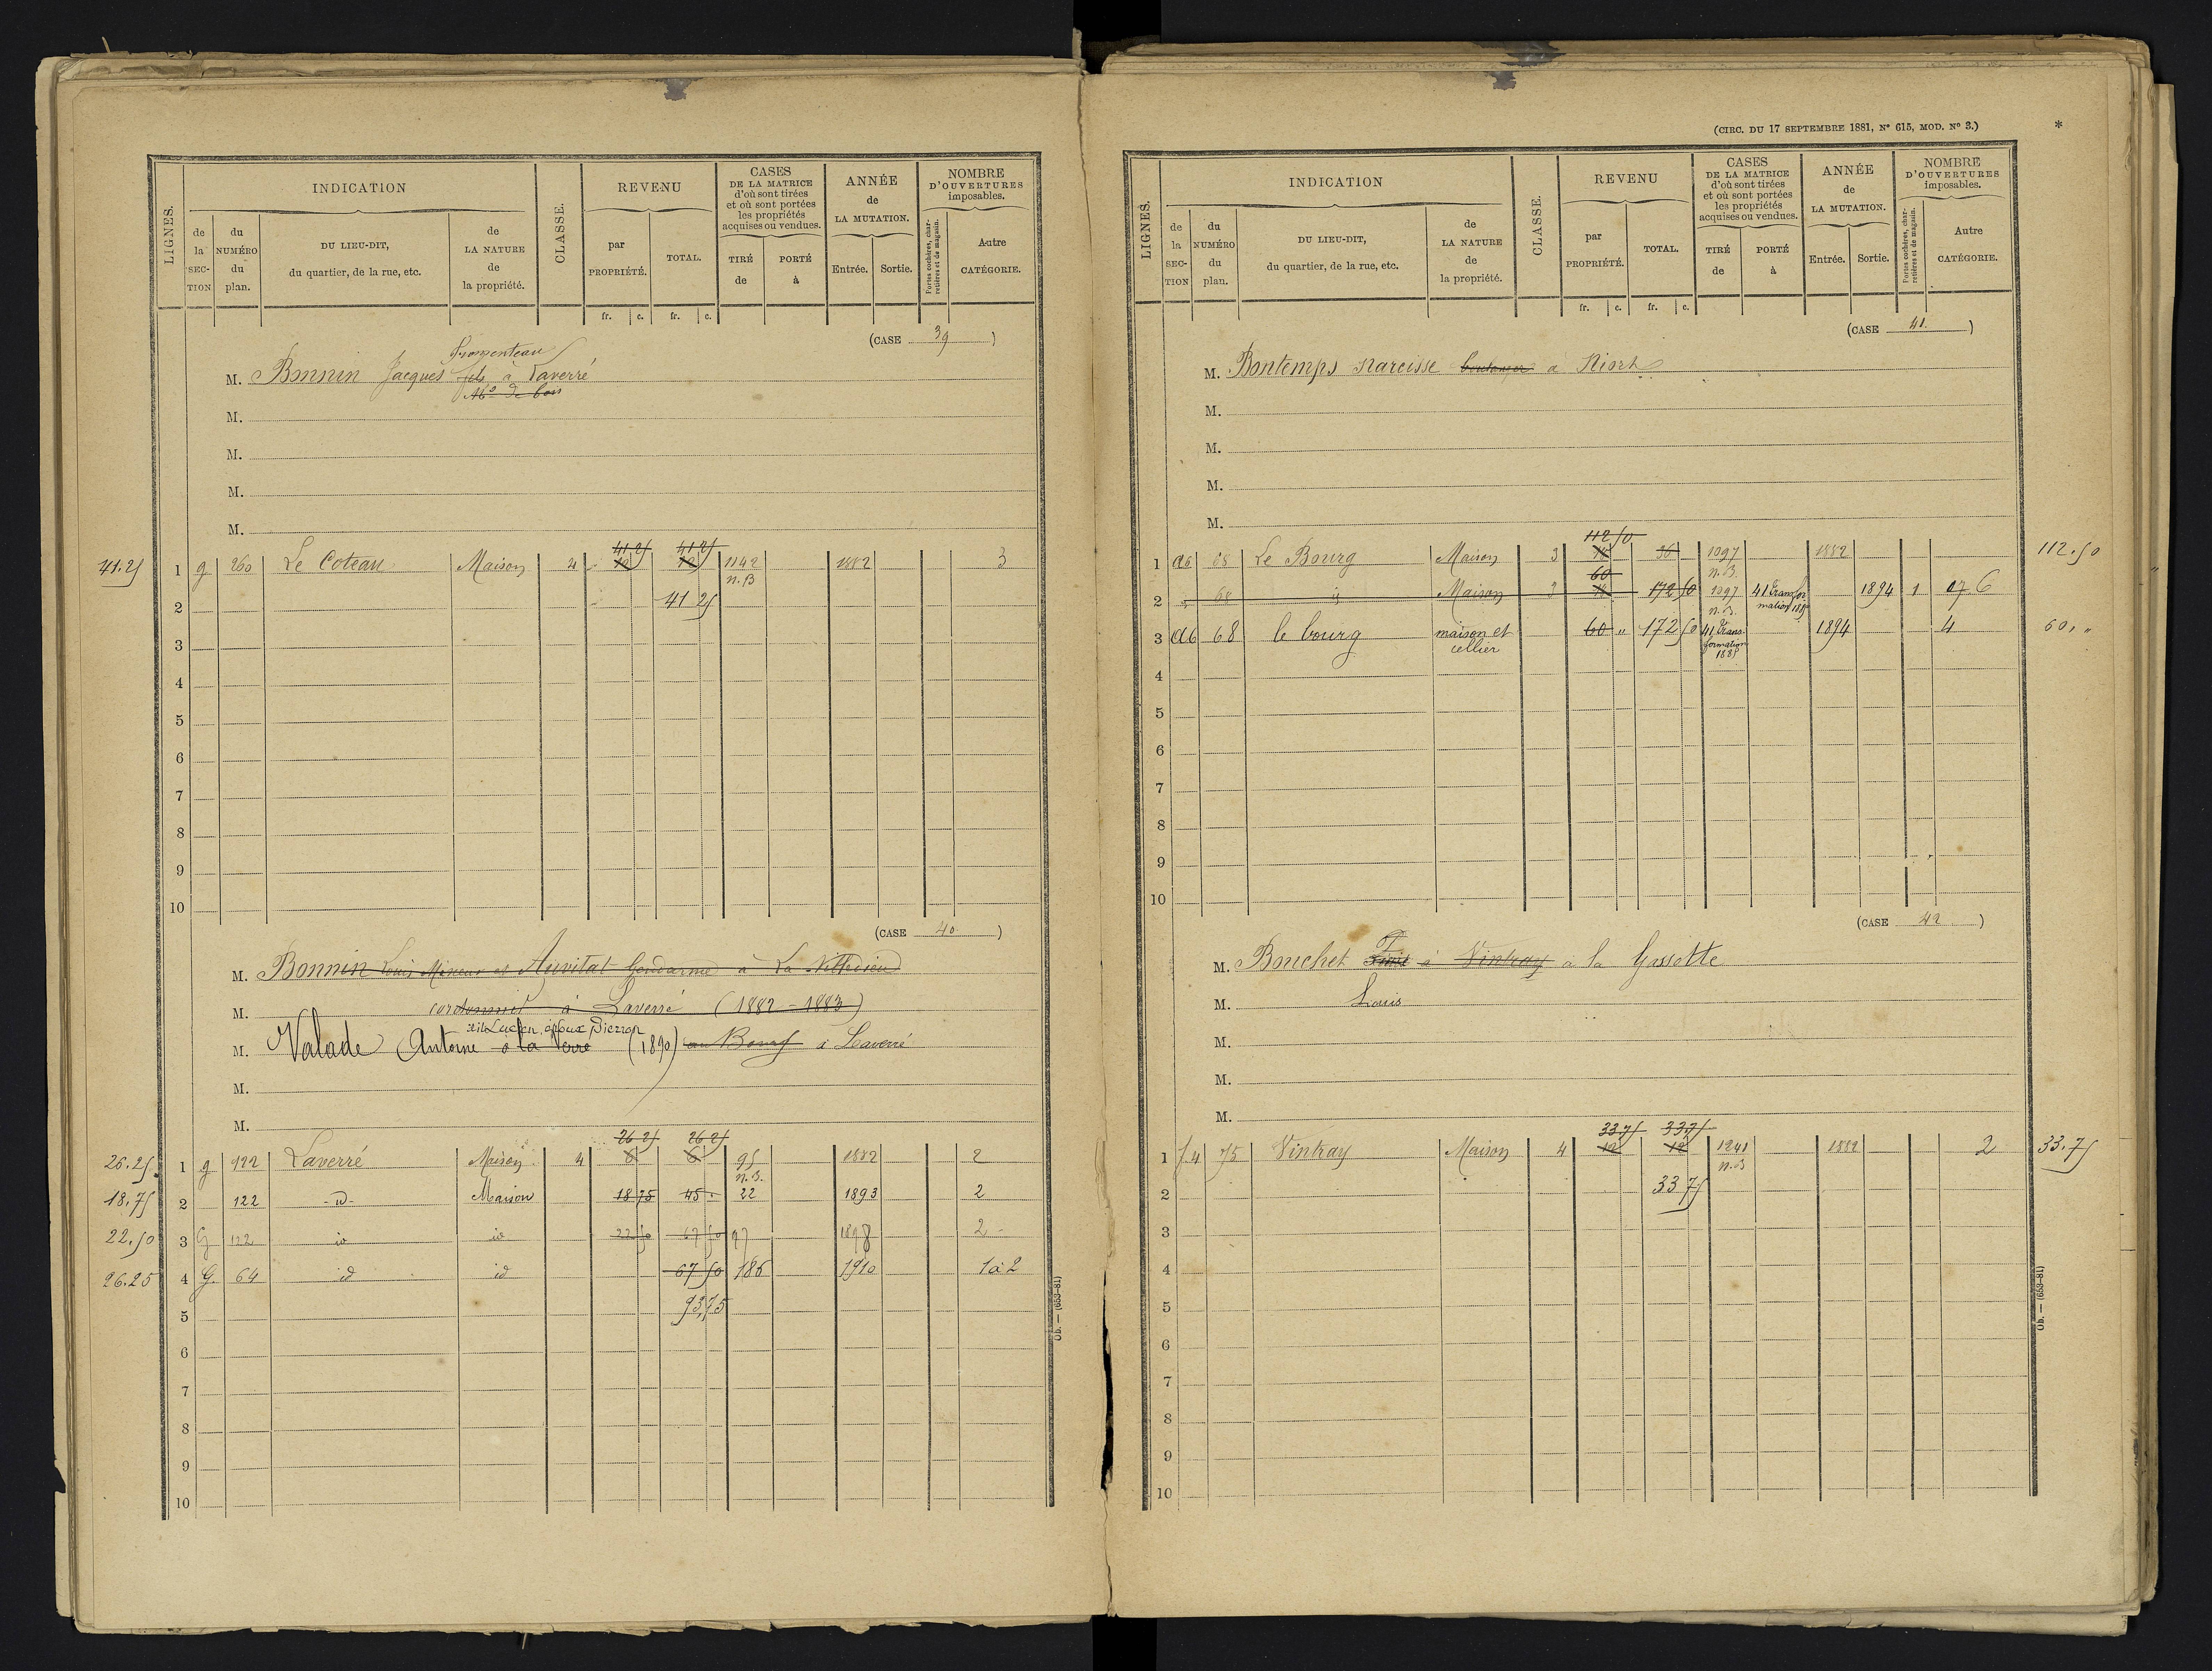 LIGNES.
INDICATION
de la SECTION
du NUMÉRO du plan.
DU LIEU-DIT, du quartier, de la rue, etc.
de LA NATURE de la propriété.
CLASSE.
REVENU
par PROPRIÉTÉ.
TOTAL.
CASES DE LA MATRICE d'où sont tirées et où sont portées les propriétés acquises ou vendues.
TIRÉ de
PORTÉ à
ANNÉE de LA MUTATION.
Entrée.
Sortie.
NOMBRE D'OUVERTURES imposables.
Portes cochères, charretières et de magasin.
Autre CATÉGORIE.
fr. c. fr. c.
(CASE 39)
M. Bonnin Jacques fils à Laverré
Md de bois
M.
M.
M.
M.
41 25 41 25
41.25 1 g 260 Le Coteau Maison 4 1142 1882 3
n. B
2 41 25
3
4
5
6
7
8
9
10
(CASE 40)
M. Bonnin Louis Mineur et Auvitat Gendarme à La Villedieu
M. cordonnier à Laverré (1882 - 1883)
M. Valade Antoine à la Verré (1890) au Bourg à Laverré
M.
M.
26 25 26 25
26.25 1 g 122 Laverré Maison 4 6 6 95 1882 2
n. B.
18.75 2 122 - id - Maison 18 75 45 . 22 1893 2
22.50 3 G 122 id id 22 50 67 50 97 1898 2
26.25 4 G. 64 id id 67 50 186 1910 1 à 2
5 93,75
6
7
8
9
10
Ob. — (653-81)
(CIRC. DU 17 SEPTEMBRE 1881, N° 615, MOD. N° 3.)
*
LIGNES.
INDICATION
de la SECTION
du NUMÉRO du plan.
DU LIEU-DIT, du quartier, de la rue, etc.
de LA NATURE de la propriété.
CLASSE.
REVENU
par PROPRIÉTÉ.
TOTAL.
CASES DE LA MATRICE d'où sont tirées et où sont portées les propriétés acquises ou vendues.
TIRÉ de
PORTÉ à
ANNÉE de LA MUTATION.
Entrée.
Sortie.
NOMBRE D'OUVERTURES imposables.
Portes cochères, charretières et de magasin.
Autre CATÉGORIE.
fr. c. fr. c.
(CASE 41.)
M. Bontemps Narcisse boulanger à Niort
M.
M.
M.
M.
112 50
1 a6 68 Le Bourg Maison 3 36 1097 1882 112.50
60 n. B.
2 68 id Maison 3 172 50 1097 41 transformation 1894 1 6
n. B.
3 a6 68 le bourg maison et cellier 60 " 172 50 41 transformation 1894 4 60, "
4
5
6
7
8
9
10
(CASE 42)
M. Bouchet à Vintray à la Gassotte
M. Louis
M.
M.
M.
33 75 33 75
1 f.4 75 Vintray Maison 4 12 12 1241 1882 2 33.75
n. B
2 33 75
3
4
5
6
7
8
9
10
Ob. — (653-81)